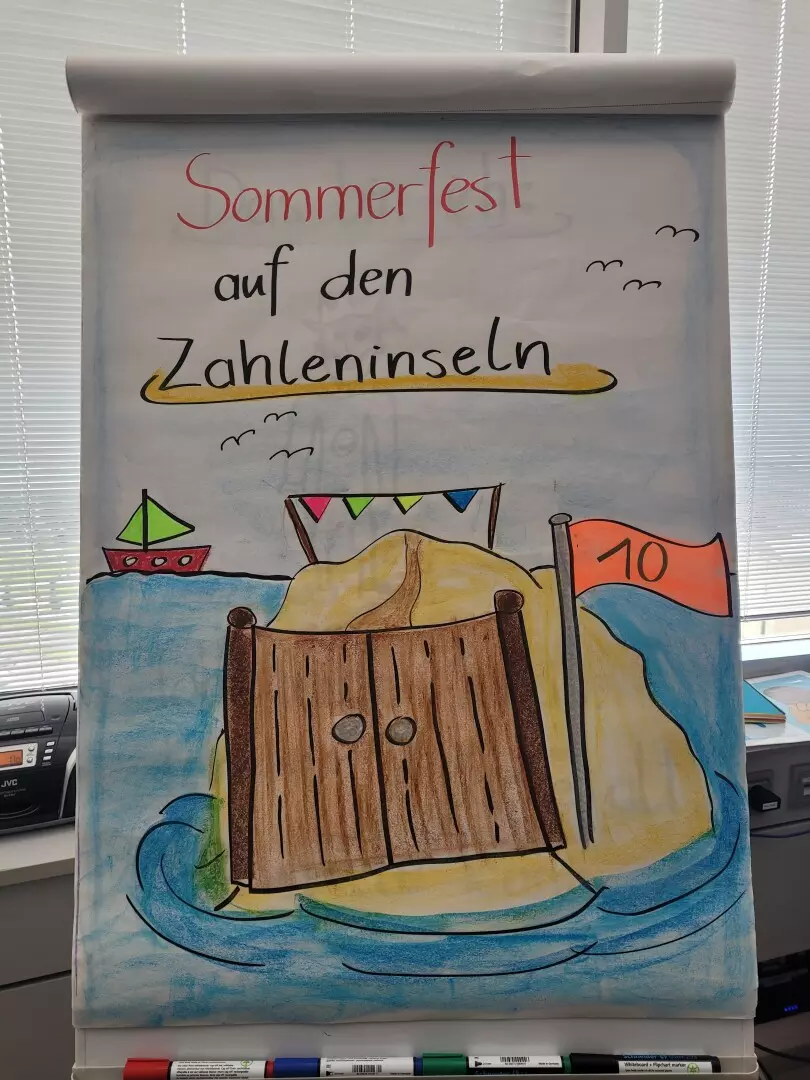 Sommerfest
auf den
Zahleninseln
10
JVC
Whiteboard + Flipchart marker